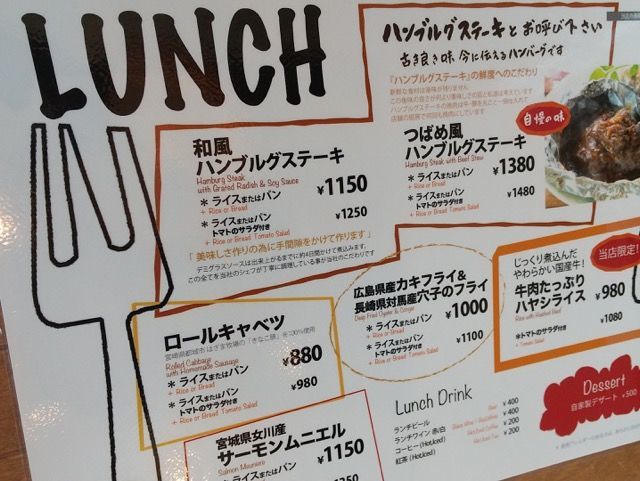 LUNCH
ハンブルグステーキとお呼び下さい
古き良き味、今に伝えるハンバーグです
『ハンブルグステーキ』の鮮度へのこだわり
自慢の味
和風
ハンブルグステーキ
Hamburg Steak
with Grated Radish & Soy Sauce
¥1150
＊ライスまたはパン
+ Rice or Bread
＊ライスまたはパン
トマトのサラダ付き
¥1250
+ Rice or Bread Tomato Salad
「美味しさ作りの為に手間隙をかけて作ります」
デミグラスソースは出来上がるまでに約4日間かけて煮込みます。
この全てを当社のシェフが丁寧に調理している事が当社のこだわりです
つばめ風
ハンブルグステーキ
Hamburg Steak with Beef Stew
¥1380
＊ライスまたはパン
+ Rice or Bread
＊ライスまたはパン
トマトのサラダ付き
¥1480
+ Rice or Bread Tomato Salad
ロールキャベツ
Rolled Cabbage
with Homemade Sausage
¥880
＊ライスまたはパン
+ Rice or Bread
＊ライスまたはパン
トマトのサラダ付き
¥980
+ Rice or Bread Tomato Salad
広島県産カキフライ&
長崎県対馬産穴子のフライ
Deep Fried Oyster & Conger
¥1000
＊ライスまたはパン
+ Rice or Bread
＊ライスまたはパン
トマトのサラダ付き
¥1100
+ Rice or Bread Tomato Salad
当店限定!
じっくり煮込んだ
やわらかい国産牛!
牛肉たっぷり
ハヤシライス
¥980
Rice with Hashed Beef
＊トマトのサラダ付き
¥1080
+ Tomato Salad
宮城県女川産
サーモンムニエル
Salmon Meuniere
¥1150
＊ライスまたはパン
Lunch Drink
ランチビール
Beer
¥400
ランチワイン 赤/白
¥400
コーヒー (Hot,Iced)
¥200
紅茶 (Hot,Iced)
¥200
Dessert
自家製デザート ¥500